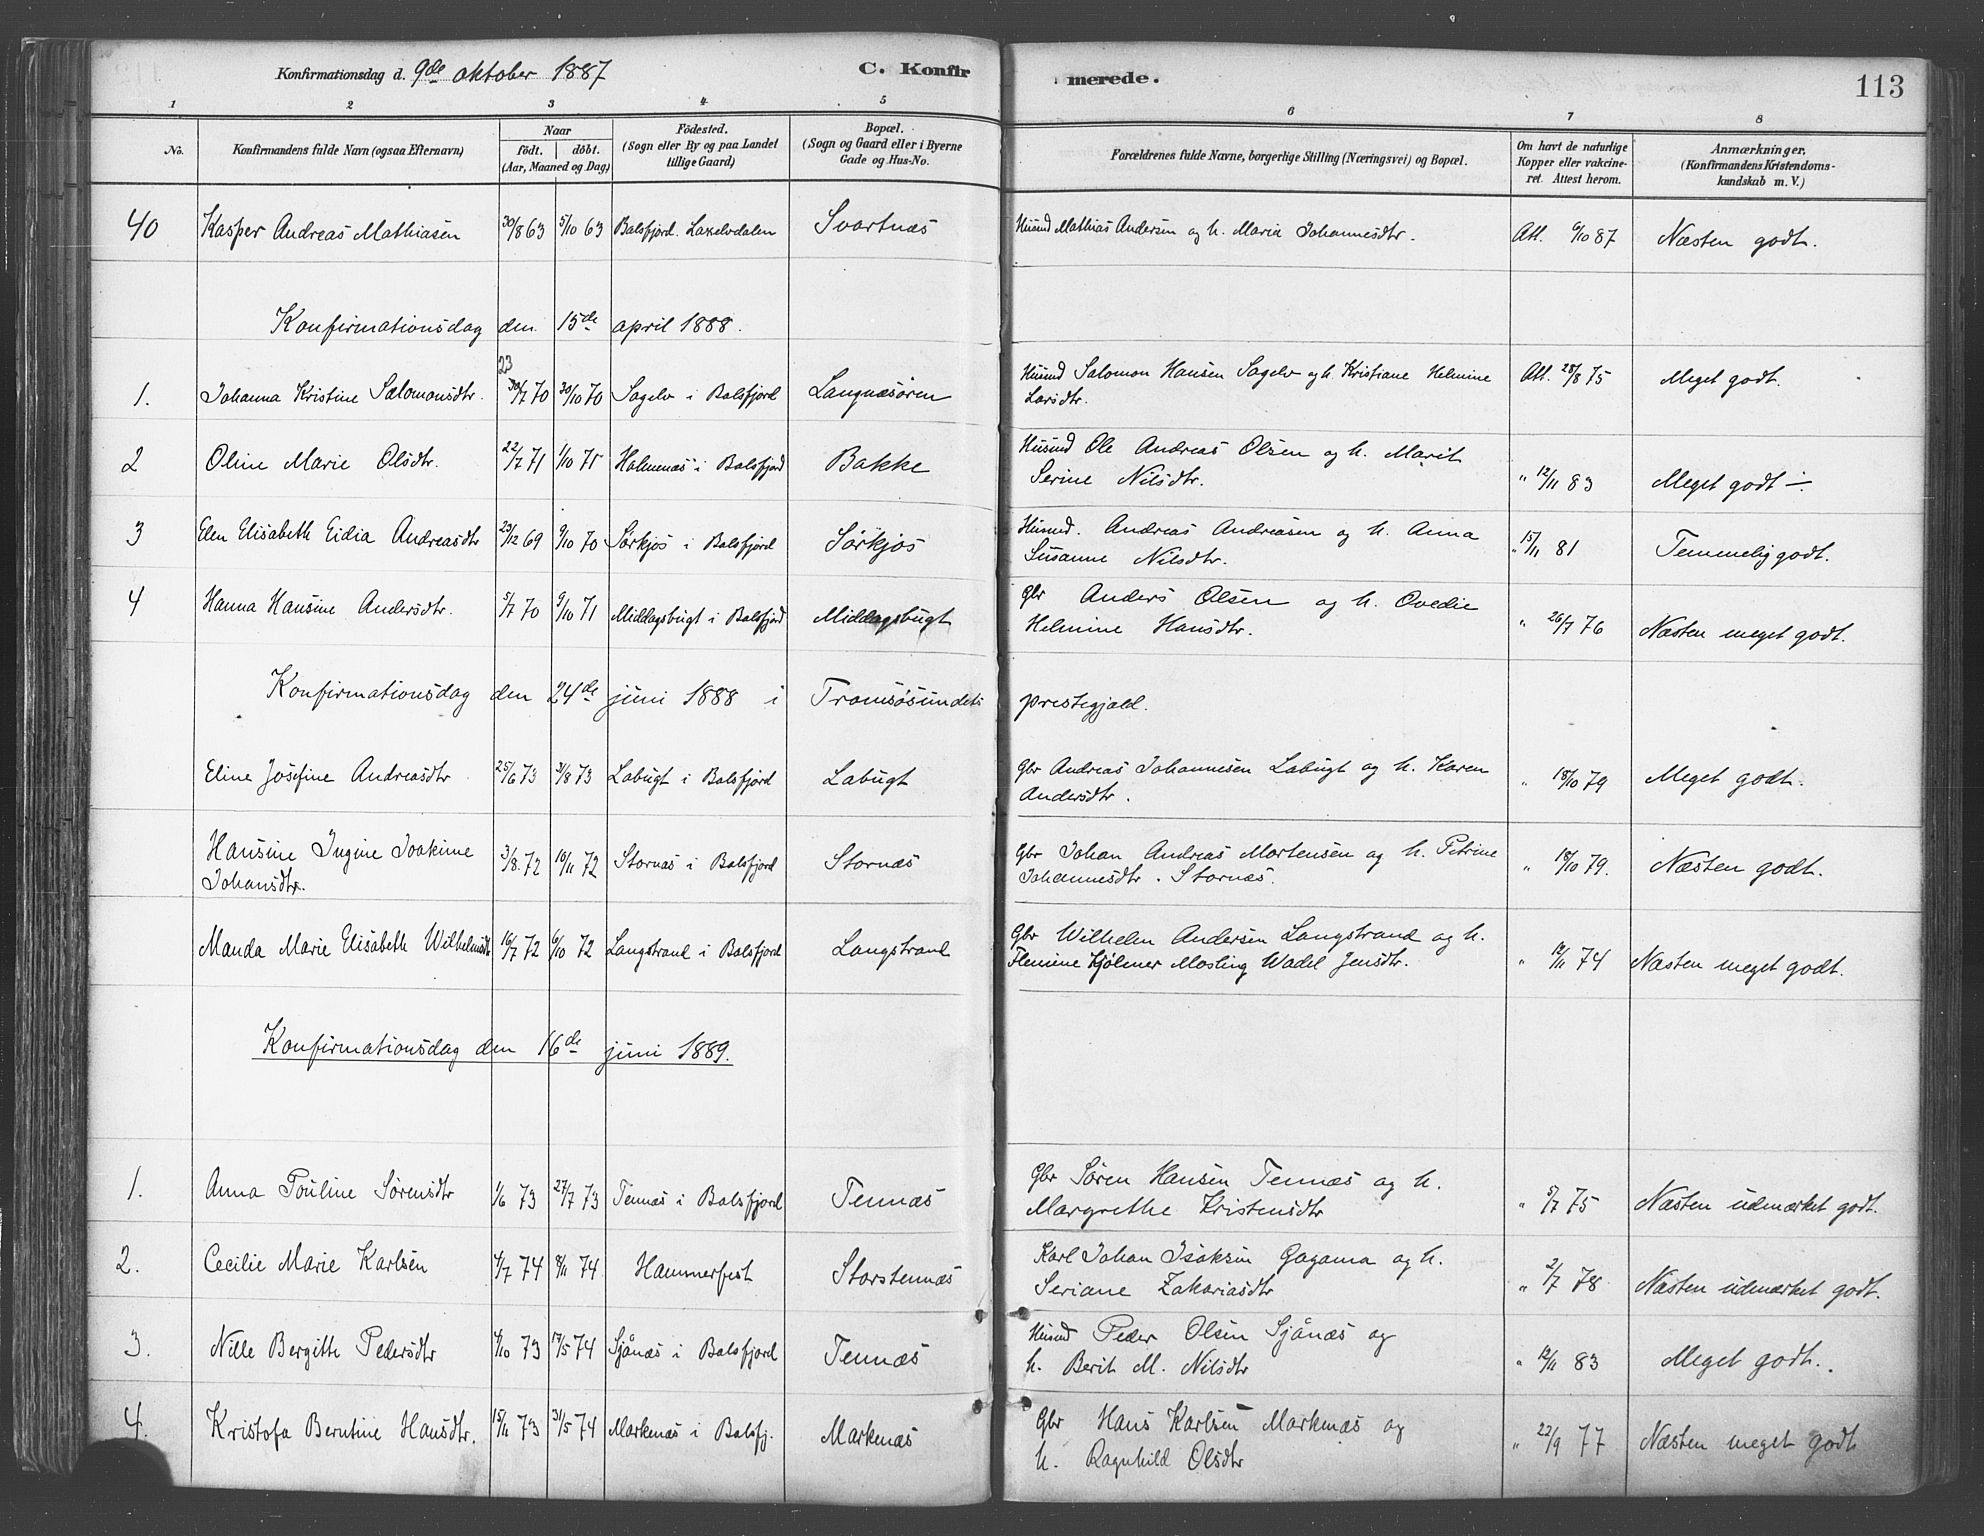 Konfirmationsdag d. 9de oktober 1887 C. Konfirmerede. 113
1 2 3 4 5 6 7 8
No. Konfirmandens fulde Navn (ogsaa Efternavn) Naar födt. döbt. (Aar, Maaned og Dag) Födested. (Sogn eller By og paa Landet tillige Gaard) Bopæl. (Sogn og Gaard eller i Byerne Gade og Hus-No. Forældrenes fulde Navne, borgerlige Stilling (Næringsvei) og Bopæl. Om havt de naturlige Kopper eller vakcineret. Attest herom. Anmærkninger, (Konfirmandens Kristendomskundskab m. V.)
40 Kasper Andreas Mathiasen 30/8 63 5/10 63 Balsfjord. Laxelvdalen Svartnæs Husmd Mathias Andersen og h. Maria Johannesdtr. Att. 6/10 87 Næsten godt.
Konfirmationsdag den 15de april 1888.
23
1. Johanna Kristine Salomonsdtr. 30/7 70 30/10 70 Sagelv i Balsfjord Langnæsören Husmd Salomon Hansen Sagelv og h. Kristiane Helmine Att. 28/8 75 Meget godt.
Larsdtr.
2 Oline Marie Olsdtr. 22/7 71 1/10 71 Holmenæs i Balsfjord Bakke Husmd Ole Andreas Olsen og h. Marit
Serine Nilsdtr. " 12/11 83 Meget godt ÷.
3 Elen Elisabeth Eidia Andreasdtr 23/12 69 9/10 70 Sørkjos i Balsfjord Sørkjos Husmd. Andreas Andreasen og h. Anna
Susanne Nilsdtr. " 15/11 81 Temmelig godt.
4 Hanna Hansine Andersdtr. 5/7 70 9/10 71 Middagsbugt i Balsfjord Middagsbugt Gbr Anders Olsen og h. Ovedie
Helmine Hansdtr. " 26/7 76 Næsten meget godt.
Konfirmationsdag den 24de juni 1888 i Tromsøsundets prestegjæld.
Eline Josefine Andreasdtr 25/6 73 3/8 73 Labugt i Balsfjord Labugt Gbr Andreas Johannesen Labugt og h. Karen
Andersdtr. " 18/10 79 Meget godt.
Hansine Ingine Joakime 3/8. 72 16/11 72 Stornæs i Balsfjord Stornæs Gbr Johan Andreas Mortensen og h. Petrine
Johansdtr. Johannesdtr. Stornæs. " 18/10 79. Næsten godt.
Manda Marie Elisabeth Wilhelmsdtr 16/7 72 6/10 72 Langstrand i Balsfjord Langstrand Gbr Wilhelm Andersen Langstrand og h.
Flemine Kjølmer Mosling Wadel Jensdtr. " 12/11 74 Næsten meget godt.
Konfirmationsdag den 16de juni 1889.
1. Anna Pouline Sørensdtr 1/6 73 27/7 73 Tennæs i Balsfjord Tennæs Gbr Søren Hansen Tennæs og h.
Margrethe Kristensdtr " 5/7 75 Næsten udmærket godt.
2. Cecilie Marie Karlsen 4/7 74 8/11 74 Hammerfest Storstennæs Karl Johan Isaksen Gagama og h.
Seriane Zakariasdtr " 2/7 78 Næsten udmærket godt.
3. Nille Bergitte Pedersdtr 4/10 73 17/5 74 Sjånæs i Balsfjord Tennæs Husmd Peder Olsen Sjånæs og
h. Berit M. Nilsdtr " 12/11 83 Meget godt.
4. Kristofa Berntine Hansdtr. 15/11 73 31/5 74 Markenæs i Balsfj. Markenæs Gbr Hans Karlsen Markenæs og
h. Ragnhild Olsdtr " 22/9 77 Næsten meget godt